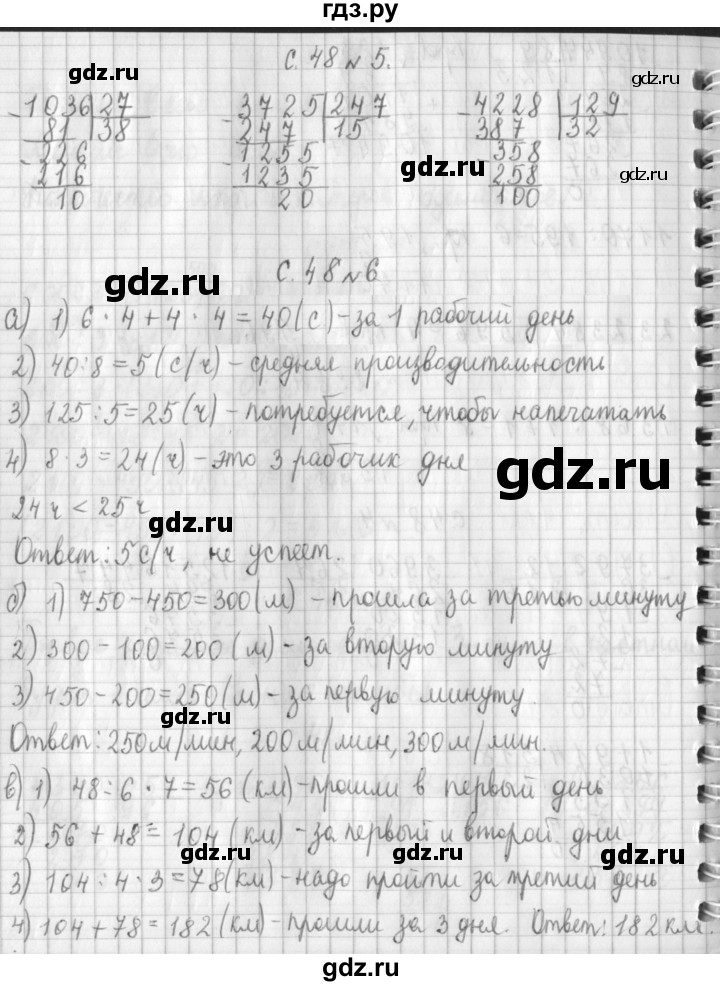 гдз.ру
С. 48 № 5.
gdz.ru
gdz.ru
1036 27 3725 247 4228 129
81 38 247 15 387 32
gdz.ru
226 1255 358
gdz.ru
216 1235 258
10 20 100
С. 48 № 6
gdz.ru
gdz.ru
а) 1) 6 · 4 + 4 · 4 = 40 (с) - за 1 рабочий день
2) 40 : 8 = 5 (с/ч) - средняя производительность
3) 125 : 5 = 25 (ч) - потребуется, чтобы напечатать
gdz.ru
4) 8 · 3 = 24 (ч) - это 3 рабочих дня
24 ч < 25 ч
gdz.ru
Ответ: 5 с/ч, не успеет.
gdz.ru
б) 1) 750 - 450 = 300 (м) - прошла за третью минуту
2) 300 - 100 = 200 (м) - за вторую минуту
3) 450 - 200 = 250 (м) - за первую минуту
gdz.ru
Ответ: 250 м/мин, 200 м/мин, 300 м/мин.
в) 1) 48 : 6 · 7 = 56 (км) - прошли в первый день
2) 56 + 48 = 104 (км) - за первый и второй дни
gdz.ru
gdz.ru
gdz.ru
3) 104 : 4 · 3 = 78 (км) - надо пройти за третий день
4) 104 + 78 = 182 (км) - прошли за 3 дня. Ответ: 182 км.
gdz.ru
gdz.ru
gdz.ru